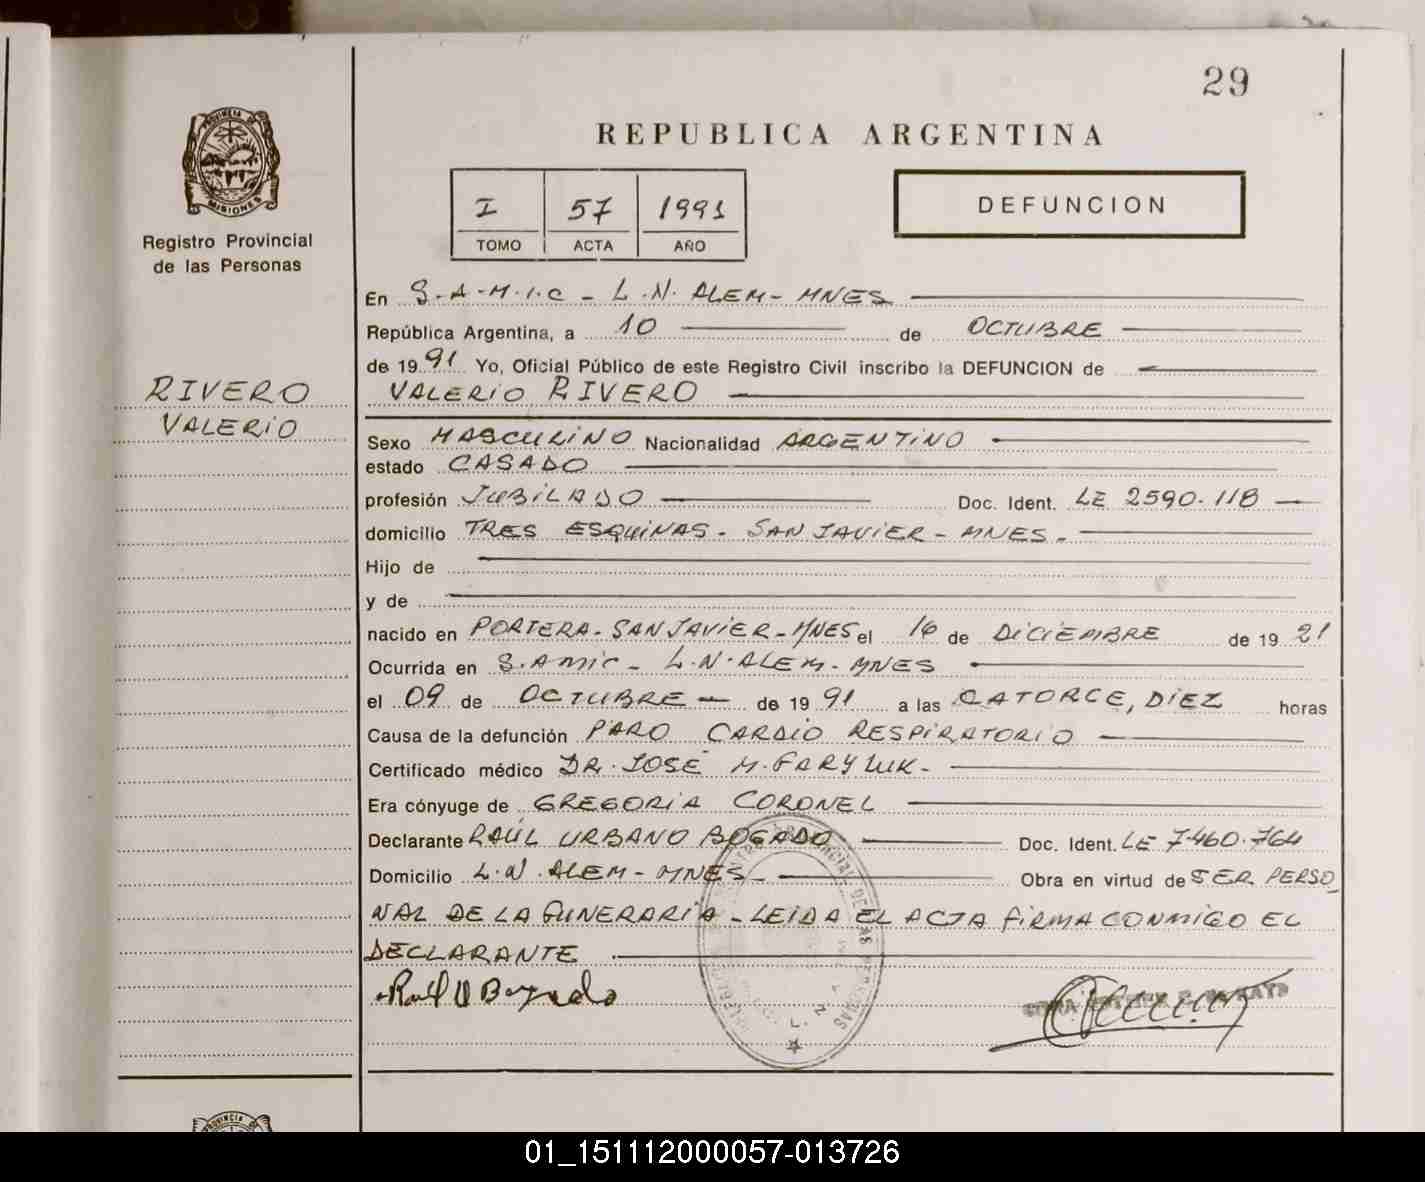 29
REPUBLICA ARGENTINA
PROVINCIA DE
MISIONES
Registro Provincial
de las Personas
I 57 1991
TOMO ACTA AÑO
DEFUNCION
RIVERO
VALERIO
En S.A.M.I.C - L.N. ALEM - MNES
República Argentina, a 10 de OCTUBRE
de 1991 Yo, Oficial Público de este Registro Civil inscribo la DEFUNCION de
VALERIO RIVERO
Sexo MASCULINO Nacionalidad ARGENTINO
estado CASADO
profesión JUBILADO Doc. Ident. LE 2590.118
domicilio TRES ESQUINAS - SAN JAVIER - MNES -
Hijo de
y de
nacido en PORTERA - SAN JAVIER - MNES el 16 de DICIEMBRE de 1921
Ocurrida en S.AMIC - L.N. ALEM - MNES
el 09 de OCTUBRE de 1991 a las CATORCE, DIEZ horas
Causa de la defunción PARO CARDIO RESPIRATORIO
Certificado médico DR. JOSÉ M. FARYLUK -
Era cónyuge de GREGORIA CORONEL
Declarante RAÚL URBANO BOGADO Doc. Ident. LE 7460.764
Domicilio L.N. ALEM - MNES - Obra en virtud de SER PERSO
NAL DE LA FUNERARIA - LEIDA EL ACTA FIRMA CONMIGO EL
DECLARANTE
Raúl U Bogado
PROVINCIA
01_151112000057-013726